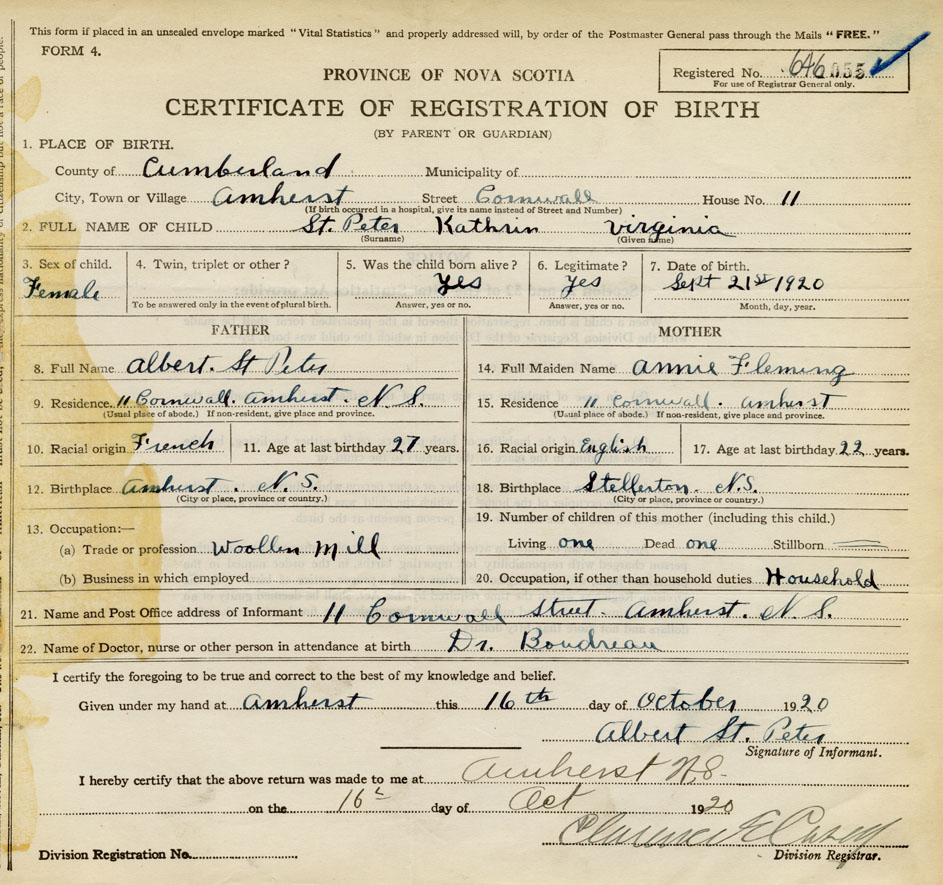 This form if placed in an unsealed envelope marked "Vital Statistics" and properly addressed will, by order of the Postmaster General pass through the Mails "FREE."
FORM 4.
Registered No. 646
For use of Registrar General only.
PROVINCE OF NOVA SCOTIA
CERTIFICATE OF REGISTRATION OF BIRTH
(BY PARENT OR GUARDIAN)
1. PLACE OF BIRTH.
County of Cumberland Municipality of
City, Town or Village Amherst Street Cornwall House No. 11
(If birth occurred in a hospital, give its name instead of Street and Number)
2. FULL NAME OF CHILD St. Peter Kathrin Virginia
(Surname) (Given name)
3. Sex of child. 4. Twin, triplet or other? 5. Was the child born alive? 6. Legitimate? 7. Date of birth.
Female Yes Yes Sept 21st 1920
To be answered only in the event of plural birth. Answer, yes or no. Answer, yes or no. Month, day, year.
FATHER MOTHER
8. Full Name Albert. St Peter 14. Full Maiden Name Annie Fleming
9. Residence. 11 Cornwall. Amherst. N.S. 15. Residence 11 Cornwall. Amherst
(Usual place of abode.) If non-resident, give place and province. (Usual place of abode.) If non-resident, give place and province.
10. Racial origin French 11. Age at last birthday 27 years. 16. Racial origin English 17. Age at last birthday. 22 years.
12. Birthplace Amherst. N.S. 18. Birthplace Stellerton. N.S.
(City or place, province or country.) (City or place, province or country.)
13. Occupation:— 19. Number of children of this mother (including this child.)
(a) Trade or profession Woollen Mill Living one Dead one Stillborn
(b) Business in which employed 20. Occupation, if other than household duties Household
21. Name and Post Office address of Informant 11 Cornwall Street. Amherst. N.S.
22. Name of Doctor, nurse or other person in attendance at birth Dr. Boudreau
I certify the foregoing to be true and correct to the best of my knowledge and belief.
Given under my hand at Amherst this 16th day of October 1920
Albert St. Peter
Signature of Informant.
I hereby certify that the above return was made to me at Amherst N.S.
on the 16th day of Oct 1920
Clarence E Casey
Division Registration No. Division Registrar.